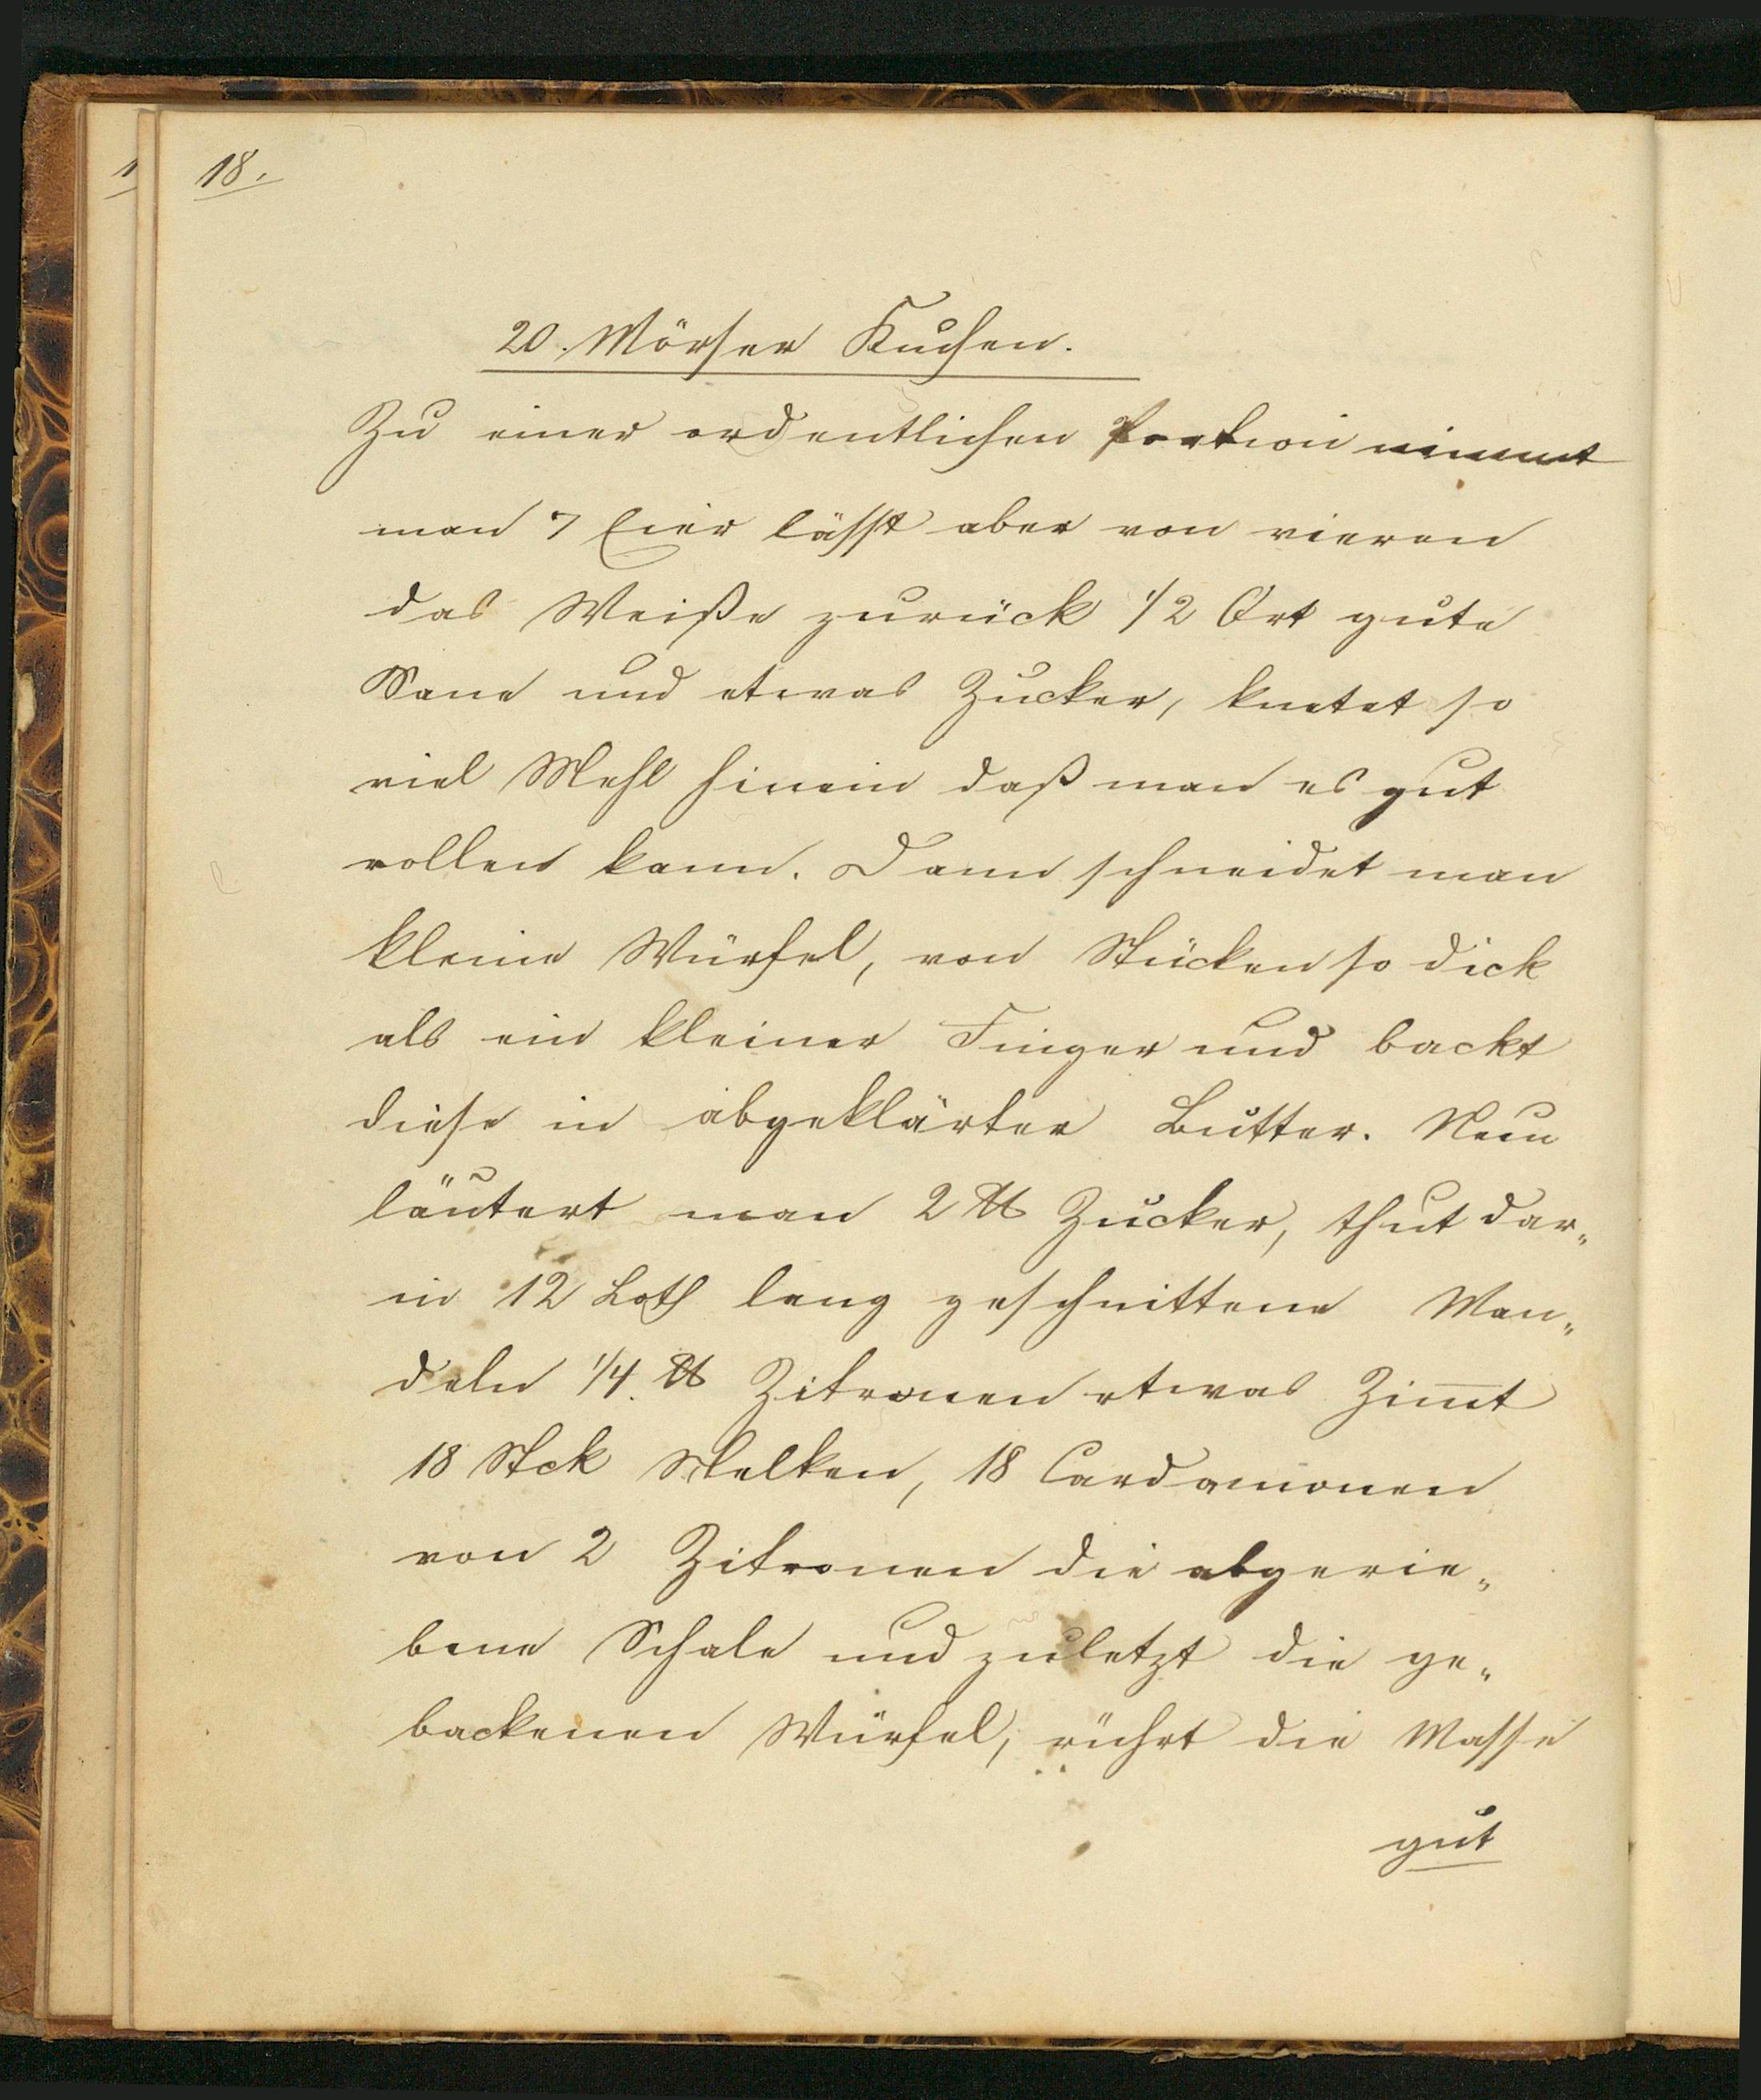 18.
20. Mörser Kuchen.
Zu einer ordentlichen Portion nimmt
man 7 Eier lässt aber von vieren
das Weiße zurück 1/2 Ort gute
Sane und etwas Zucker, knetet so
viel Mehl hinein daß man es gut
rollen kann. Dann schneidet man
kleine Würfel, von Stücken so dick
als ein kleiner Finger und backt
diese in abgeklärter Butter. Nun
läutert man 2 ℔ Zucker, thut dar„
in 12 Loth lang geschnittene Man„
deln 1/4. ℔ Zitronen etwas Zim̅t
18 Stck Nelken, 18 Cardamonen
von 2 Zitronen die abgerie„
bene Schale und zuletzt die ge„
backenen Würfel, rührt die Masse
gut